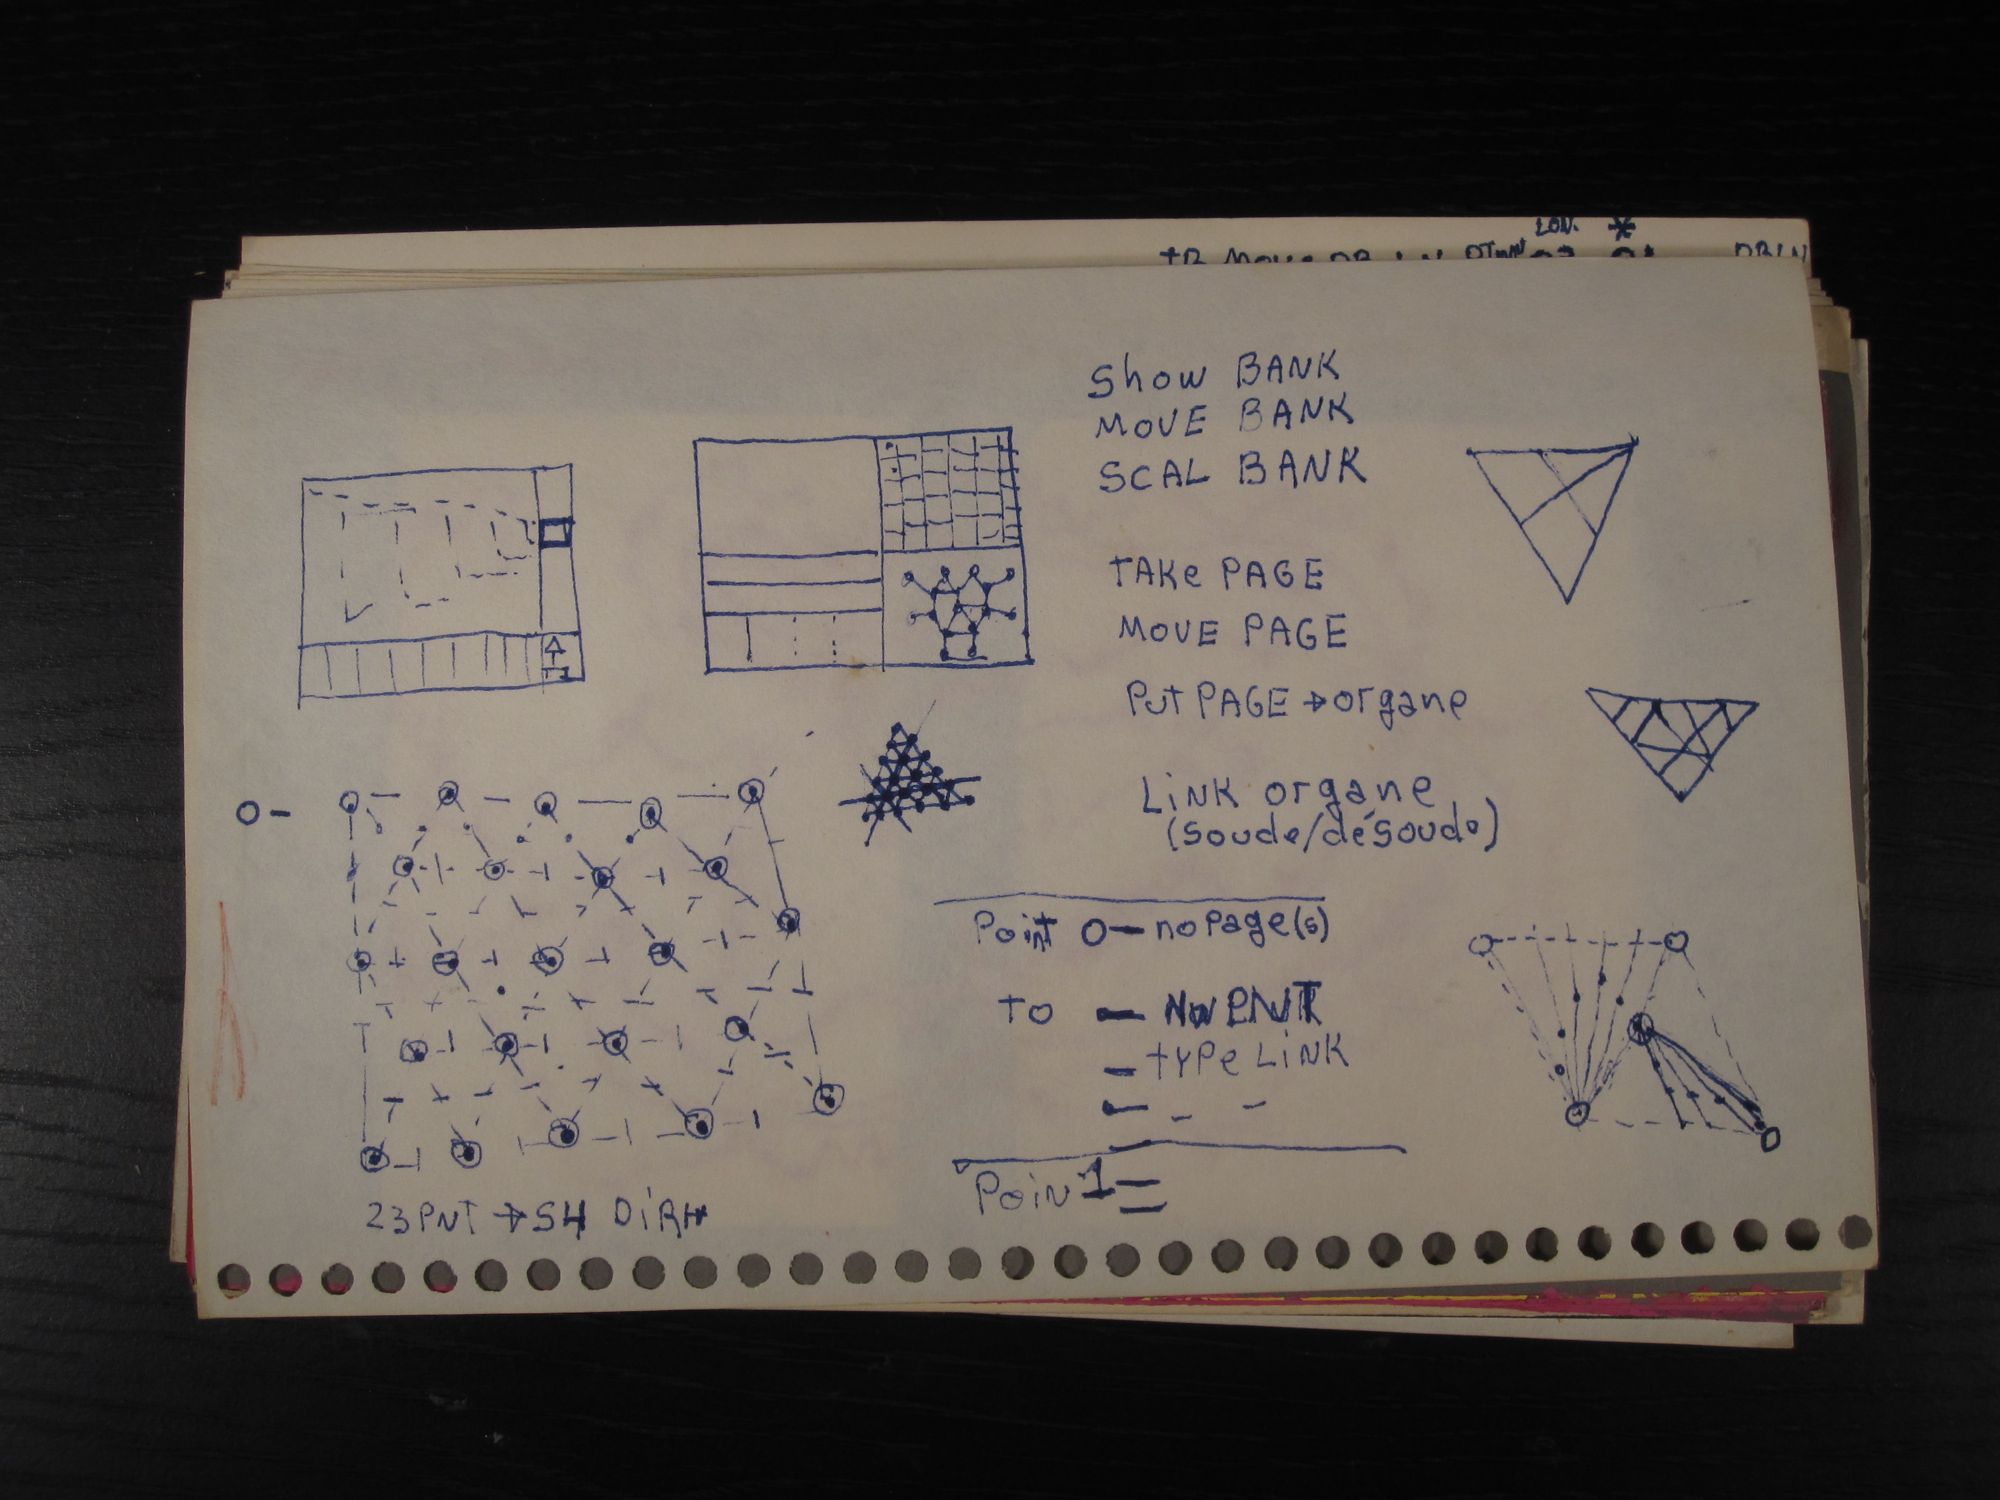 LON. *
Show BANK
MOVE BANK
SCAL BANK
TAKe PAGE
MOVE PAGE
PUT PAGE → organe
LiNK organe
(soude/désoude)
Point O — no Page(s)
TO — No PNT
— TYPe LiNK
— – –
Poin 1 =
O –
23 PNT → 54 DiRH